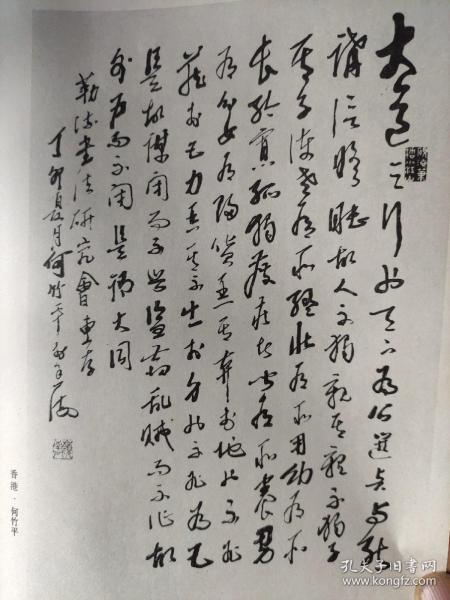 大道之行也天下為公選矣与能
講信脩睦故人不獨親其親不獨子
其子使老有所終壯有所用幼有所
長矜寡孤獨廢疾者皆有所養男
有分女有歸貨惡其棄於地也不必
藏於己力惡其不出於身也不必為己
是故謀閉而不興盜竊亂賊而不作故
外戶而不閉是謂大同
書法研究會惠存
丁卯夏月何竹平
香港·何竹平
孔夫子旧书网